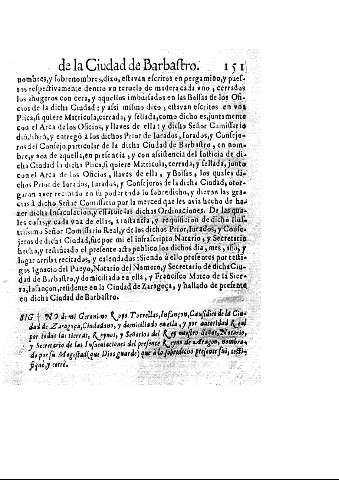 de la Ciudad de Barbastro. 151
nombres, y sobrenombres, dixo, estavan escritos en pergamino, y pues-
tos respectivamente dentro vn teruelo de madera cada vno, cerrados
los ahugeros con cera, y aquellos imbursados en las Bolsas de los Ofi-
cios de la dicha Ciudad: y assi mismo dixo, estavan escritos en vna
Plica, si quiere Matricula, cerrada, y sellada, como dicho es, juntamente
con el Arca de los Oficios, y llaves de ella: y dicho Señor Comissario
diò, librò, y entregò à los dichos Prior de Iurados, Iurados, y Consejeros
del Consejo particular de la dicha Ciudad de Barbastro, en nom-
bre, y voz de aquella, en presencia, y con assistencia del Iusticia de di-
cha Ciudad la dicha Plica, si quiere Matricula, cerrada, y sellada, junto
con el Arca de los Oficios, llaves de ella, y Bolsas, à los quales di-
chos Prior de Iurados, Iurados, y Consejeros de la dicha Ciudad, otor-
garon aver recibido en su poder todo lo sobredicho, y dieron las gra-
cias à dicho Señor Comissario por la merced que les avia hecho de ha-
zer dicha Insaculacion, y estatuir las dichas Ordinaciones. De las qua-
les cosas, y cada vna de ellas, à instancia, y requisicion de dicho Ilus-
trissimo Señor Comissario Real, y de los dichos Prior, Iurados, y Conse-
jeros de dicha Ciudad, fue por mi el infrascripto Notario, y Secretario
hecho, y testificado el presente acto publico los dichos dia, mes, año, y
lugar arriba recitados, y calendados: Siendo à ello presentes por testi-
gos Ignacio del Pueyo, Notario del Numero, y Secretario de dicha Ciu-
dad de Barbastro, y domiciliado en ella, y Francisco Mateo de la Sier-
ra, Infançon, residente en la Ciudad de Zaragoça, y hallado de presente
en dicha Ciudad de Barbastro.
SIG ✝ NO de mi Geronimo Royo Torrellas, Infançon, Causidico de la Ciu-
dad de Zaragoça, Ciudadano, y domiciliado en ella, y por autoridad Real
por todas las tierras, Reynos, y Señorios del Rey nuestro Señor, Notario,
y Secretario de las Insaculaciones del presente Reyno de Aragon, nombra-
do por su Magestad (que Dios guarde) que à lo sobredicho presente fui, testi-
fiquè, y cerrè.